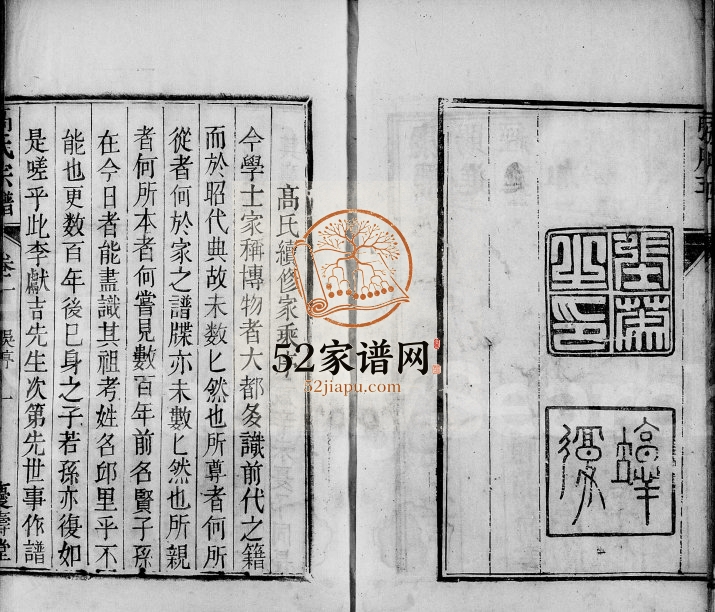 高氏續修家乘
今學士家稱博物者大都多識前代之籍
而於昭代典故未數匕然也所尊者何所
從者何於家之譜牒亦未數匕然也所親
者何所本者何嘗見數百年前名賢子孫
在今日者能盡識其祖考姓名邱里乎不
能也更数百年後巳身之子若孫亦復如
是嗟乎此李獻吉先生次第先世事作譜
氏宗譜
卷一
一
慶壽堂
52家谱网
52jiapu.com